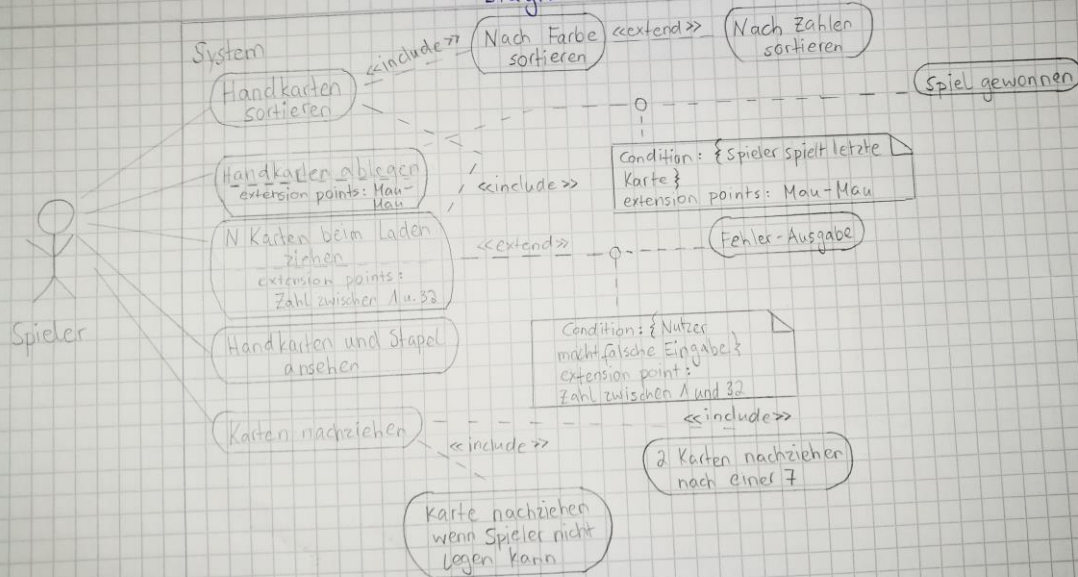 System
<<include>>
Nach Farbe
sortieren
<<extend>>
Nach Zahlen
sortieren
Handkarten
sortieren
Spiel gewonnen
Handkarten ablegen
extension points: Mau-
Mau
<<include>>
Condition: {Spieler spielt letzte
Karte}
extension points: Mau-Mau
N Karten beim Laden
ziehen
extension points:
Zahl zwischen 1 u. 32
<<extend>>
Fehler-Ausgabe
Spieler
Handkarten und Stapel
ansehen
Condition: {Nutzer
macht falsche Eingabe}
extension point:
Zahl zwischen 1 und 32
Karten nachziehen
<<include>>
<<include>>
2 Karten nachziehen
nach einer 7
Karte nachziehen
wenn Spieler nicht
legen kann